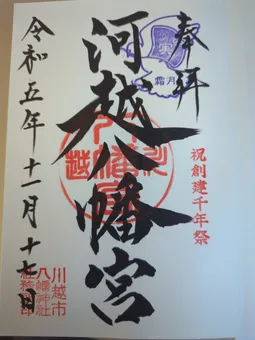 奉拝
霜月
祝創建千年祭
河越八幡宮
令和五年十一月十七日
川越市
八幡神社
社務所印